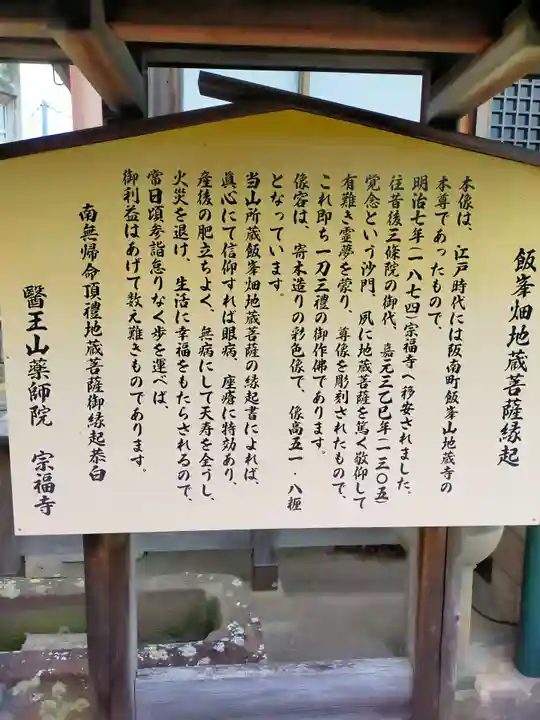 飯峯畑地蔵菩薩縁起
本像は、江戸時代には阪南町飯峯山地蔵寺の
本尊であったもので、
明治七年(一八七四)宗福寺へ移安されました。
往昔後三條院の御代、嘉元三乙巳年(一三〇五)
覚念という沙門、夙に地蔵菩薩を篤く敬仰して
有難き霊夢を蒙り、尊像を彫刻されたもので、
これ即ち一刀三禮の御作佛であります。
像容は、寄木造りの彩色像で、像高五一・八糎
となっています。
当山所蔵飯峯畑地蔵菩薩の縁起書によれば、
眞心にて信仰すれば眼病、座瘡に特効あり、
産後の肥立ちよく、無病にして天寿を全うし、
火災を退け、生活に幸福をもたらされるので、
常日頃参詣怠りなく歩を運べば、
御利益はあげて数え難きものであります。
南無帰命頂禮地蔵菩薩御縁起恭白
醫王山薬師院 宗福寺